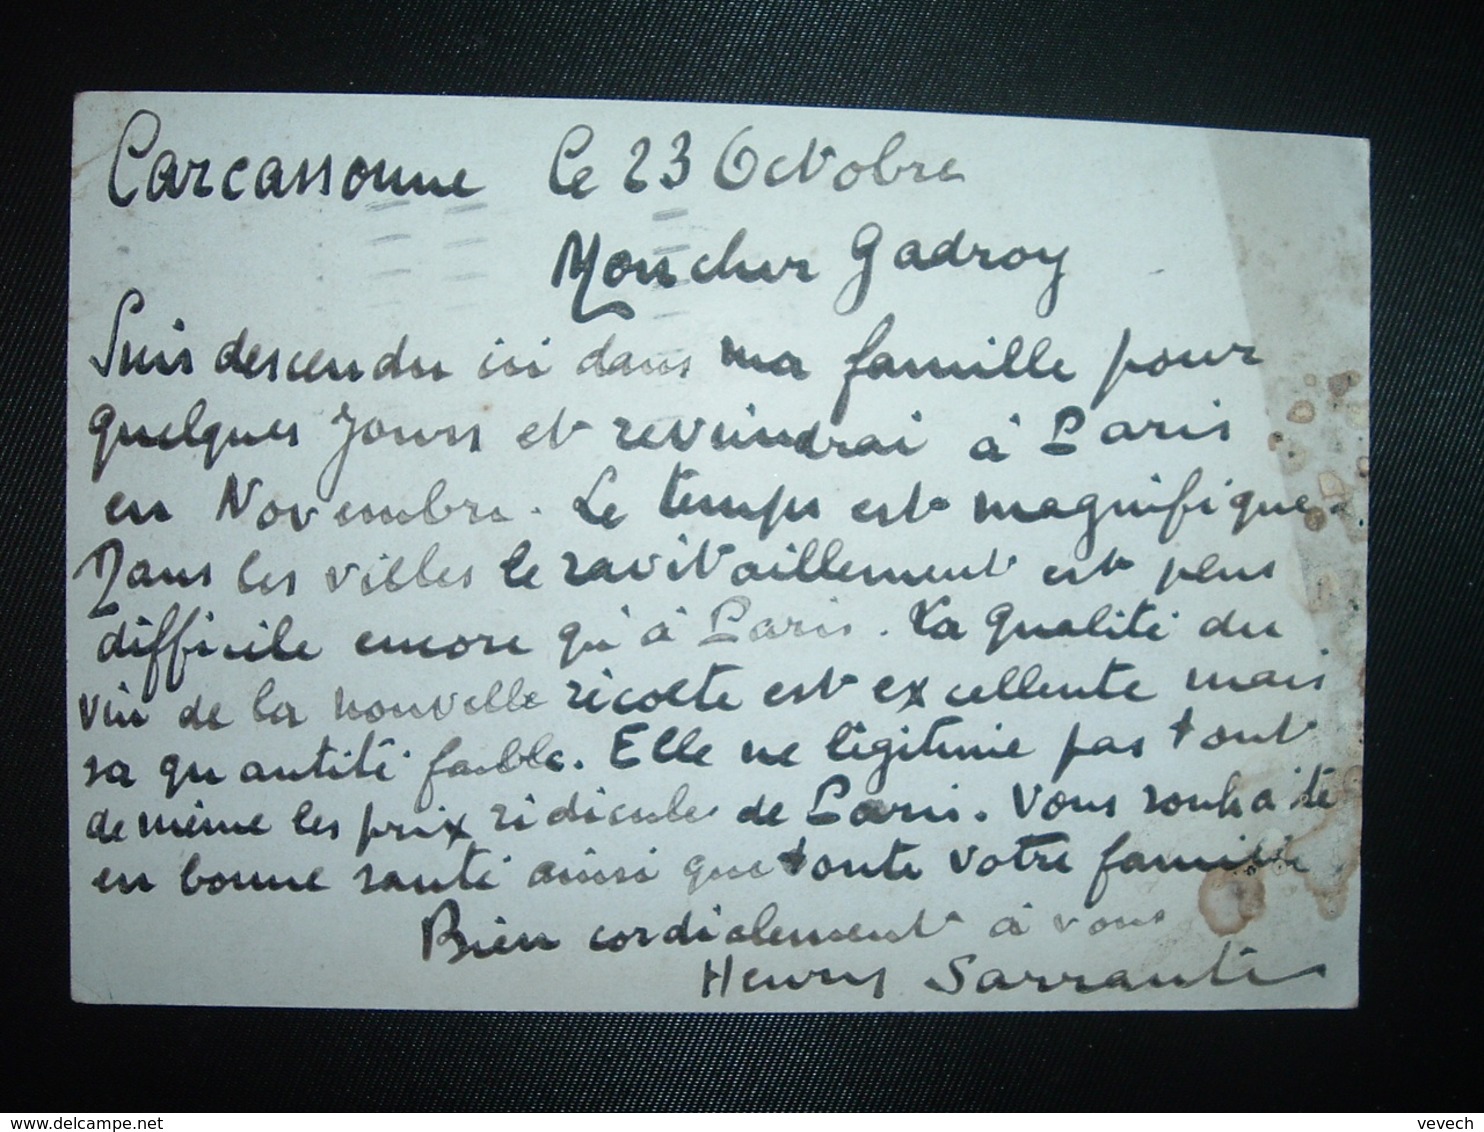 Carcassonne le 23 Octobre
Mon cher Gadroy
Suis descendu ici dans ma famille pour
quelques jours et reviendrai à Paris
en Novembre. Le temps est magnifique.
Dans les villes le ravitaillement est plus
difficile encore qu'à Paris. La qualité du
vin de la nouvelle récolte est excellente mais
sa quantité faible. Elle ne légitime pas tout
de même les prix ridicules de Paris. Vous souhaite
en bonne santé ainsi que toute votre famille
Bien cordialement à vous
Henry Sarraute
www.delcampe.net
vevech